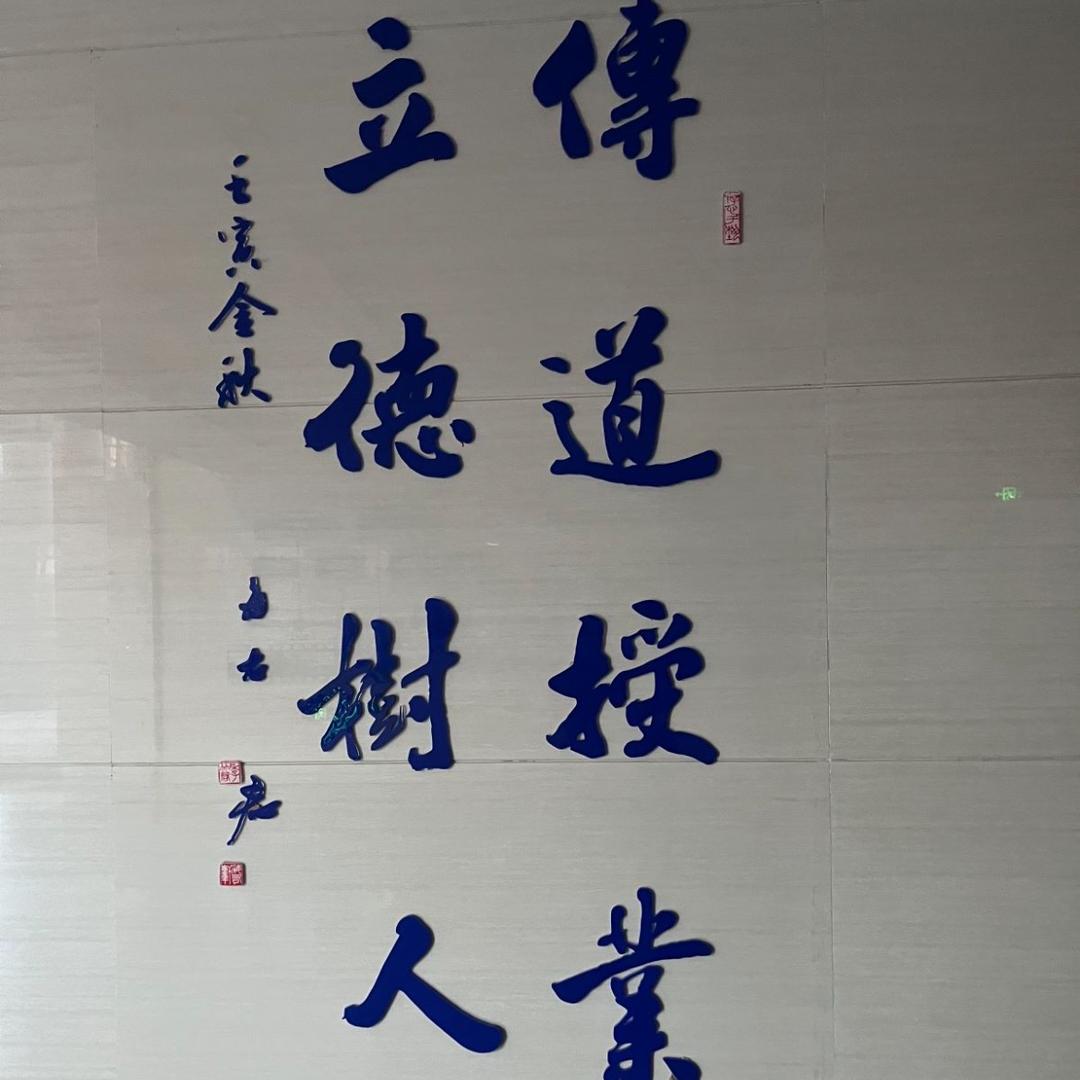 傳道授業
立德樹人
壬寅金秋